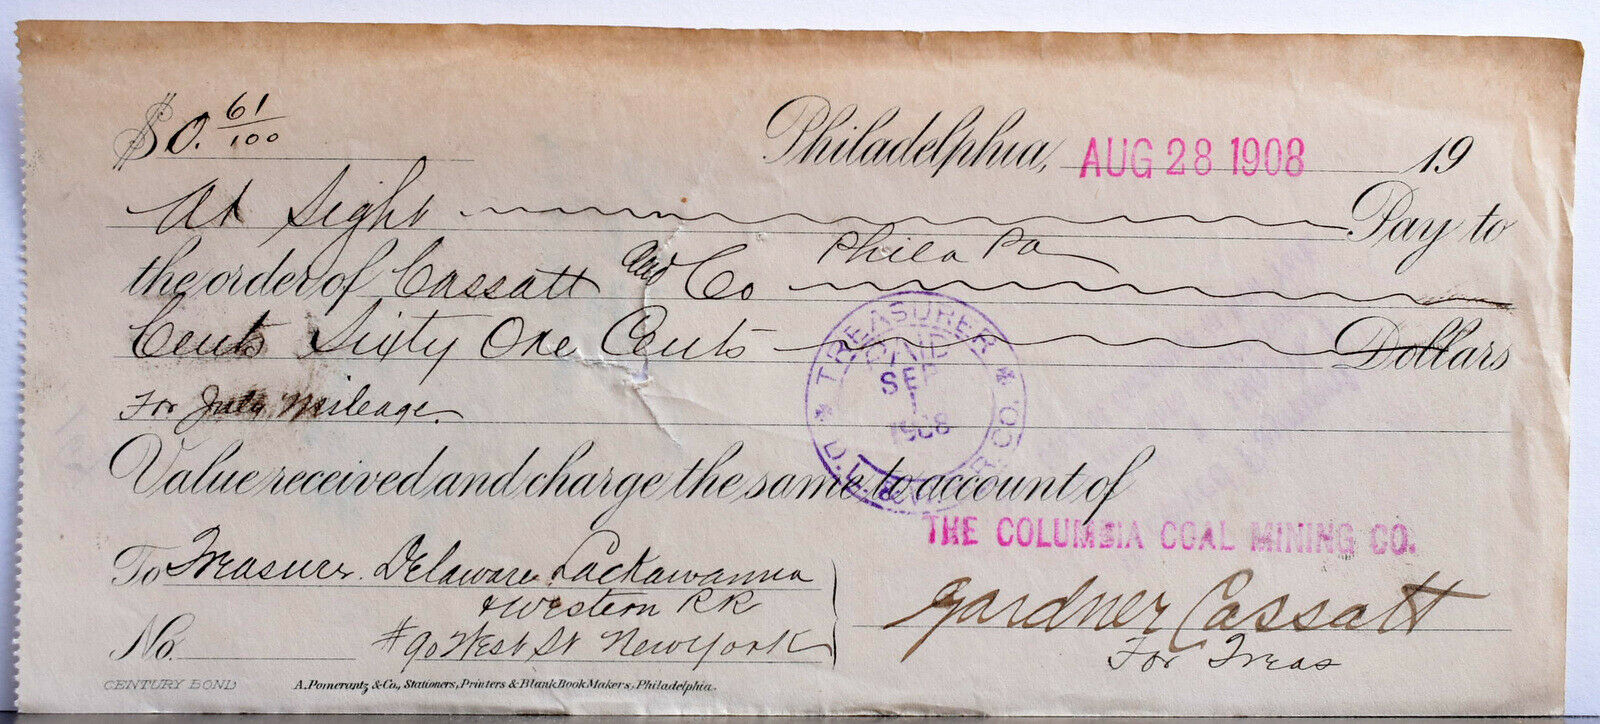 $ 0. 61/100
Philadelphia, AUG 28 1908 19
At Sight Pay to
the order of Cassatt and Co Phila Pa
Cents Sixty One Cents Dollars
For July Mileage
Value received and charge the same to account of
THE COLUMBIA COAL MINING CO.
To Treasurer Delaware Lackawanna
& Western RR
No. #90 West St New York
Gardner Cassatt
For Treas
TREASURER
PAID
SEP
1
1908
CENTURY BOND A. Pomerantz & Co., Stationers, Printers & Blank Book Makers, Philadelphia.